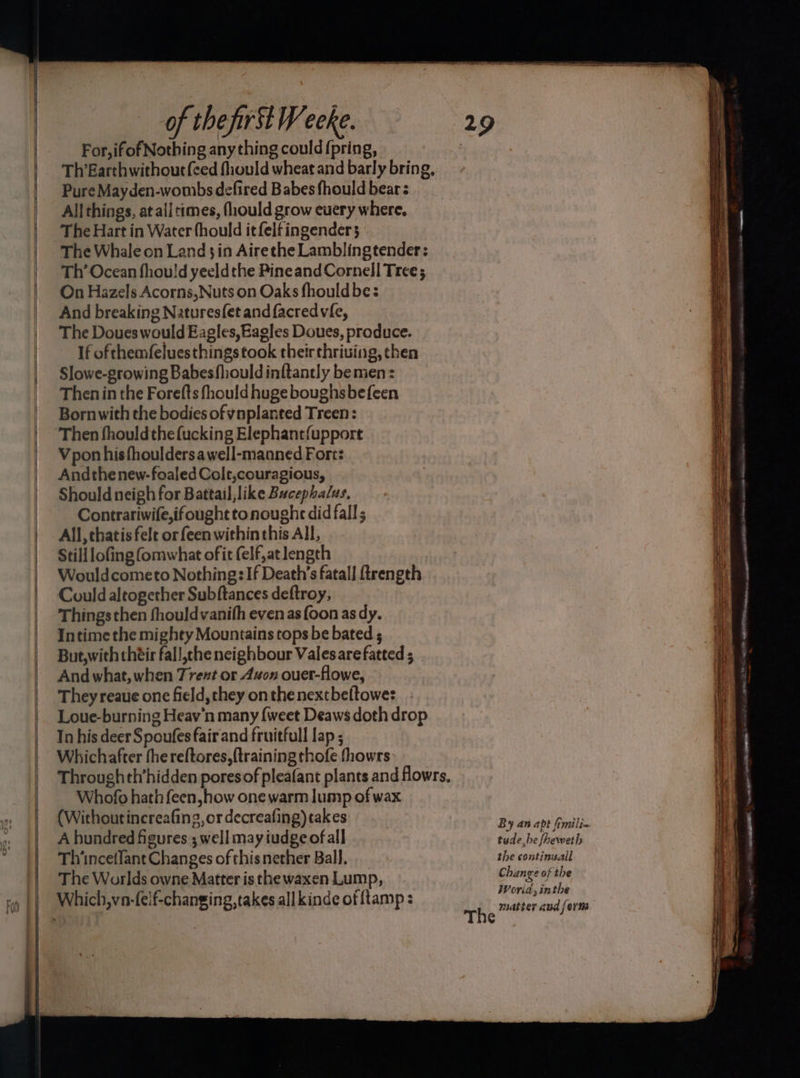 of the first Weeke. 29
For, if of Nothing any thing could ſpring,
Th'Earth without ſeed ſhould wheat and barly bring,
Pure Mayden-wombs deſired Babes ſhould bear:
All things, at all times, ſhould grow euery where.
The Hart in Water ſhould it ſelf ingender;
The Whale on Land; in Aire the Lambling tender:
Th' Ocean ſhould yeeld the Pine and Cornell Tree;
On Hazels Acorns, Nuts on Oaks ſhould be:
And breaking Natures ſet and ſacred vſe,
The Doues would Eagles, Eagles Doues, produce.
If of themſelues things took their thriuing, then
Slowe-growing Babes ſhould inſtantly be men:
Then in the Foreſts ſhould huge boughs be ſeen
Born with the bodies of vnplanted Treen:
Then ſhould the ſucking Elephant ſupport
Vpon his ſhoulders a well-manned Fort:
And the new-foaled Colt, couragious,
Should neigh for Battail, like Bucephalus.
Contrariwiſe, if ought to nought did fall;
All, that is felt or ſeen within this All,
Still loſing ſomwhat of it ſelf, at length
Would come to Nothing: If Death's fatall ſtrength
Could altogether Subſtances deſtroy,
Things then ſhould vaniſh even as ſoon as dy.
In time the mighty Mountains tops be bated;
But, with their fall, the neighbour Vales are fatted;
And what, when Trent or Auon ouer-flowe,
They reaue one field, they on the next beſtowe:
Loue-burning Heav'n many ſweet Deaws doth drop
In his deer Spouſes fair and fruitfull lap;
Which after ſhe reſtores, ſtraining thoſe ſhowrs
Through th'hidden pores of pleaſant plants and flowrs.
Whoſo hath ſeen, how one warm lump of wax
(Without increaſing, or decreaſing) takes
A hundred figures; well may iudge of all
Th'inceſſant Changes of this nether Ball.
The Worlds owne Matter is the waxen Lump,
Which, vn-ſelf-changing, takes all kinde of ſtamp:
The
By an apt ſimili-
tude, he ſheweth
the continuall
Change of the
World, in the
matter and form